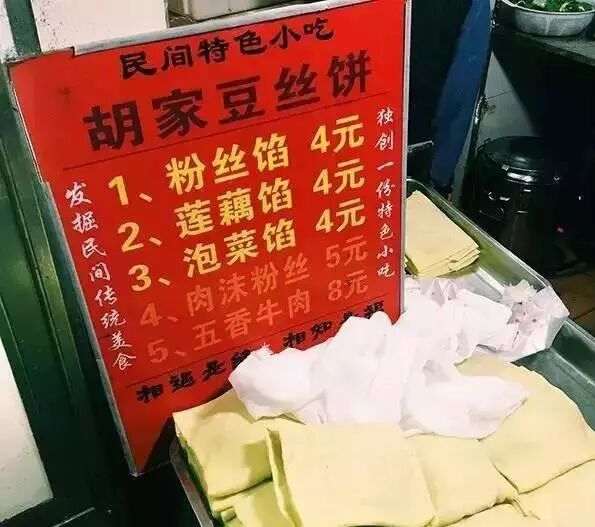 民间特色小吃
胡家豆丝饼
1、粉丝馅 4元
2、莲藕馅 4元
3、泡菜馅 4元
4、肉沫粉丝 5元
5、五香牛肉 8元
相遇是缘 相知是福
发掘民间传统美食
独创一份特色小吃